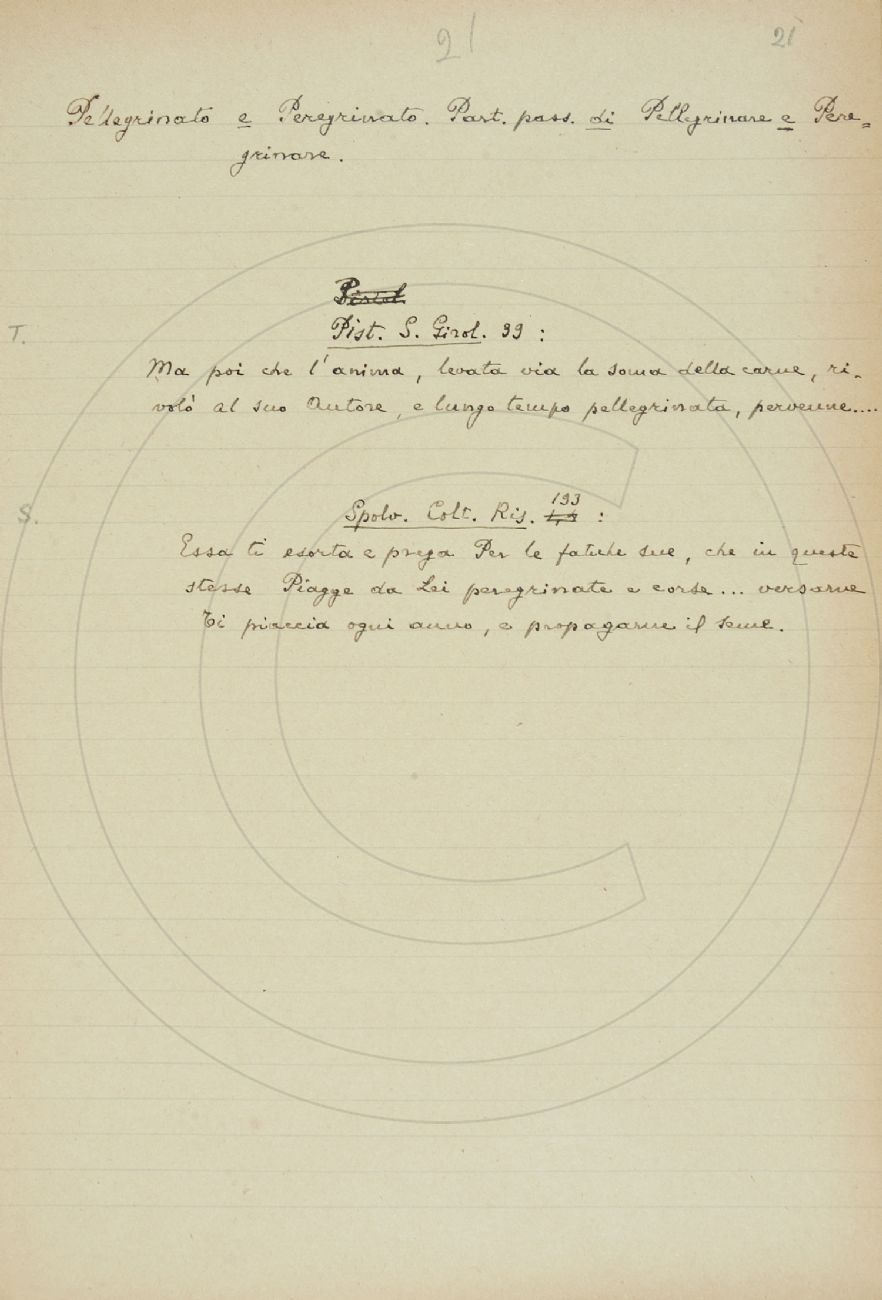 21 21
Pellegrinato e Peregrinato. Part. pass. di Pellegrinare e Pere=
grinare.
Pist. S. Girol. 99 :
T.
Ma poi che l'anima, levata via la soma della carne, ri-
volò al suo Autore, e lungo tempo pellegrinata, pervenne....
Spolv. Colt. Ris. 193 :
S.
Essa ti esorta e prega Per le fatiche sue, che in queste
stesse Piagge da Lei peregrinate e corse... versarne
Ti piaccia ogni anno, e propagarne il seme.